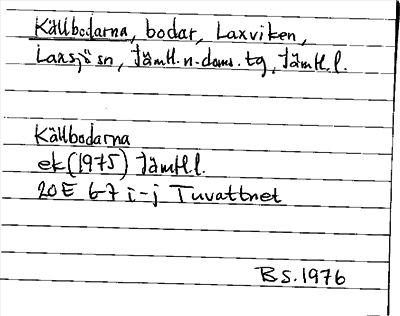 Källbodarna, bodar, Laxviken,
Laxsjö sn, Jämtl. n. doms. tg, Jämtl. l.
Källbodarna
ek (1975) Jämtl l.
20E 6-7 i-j Tuvattnet
BS. 1976